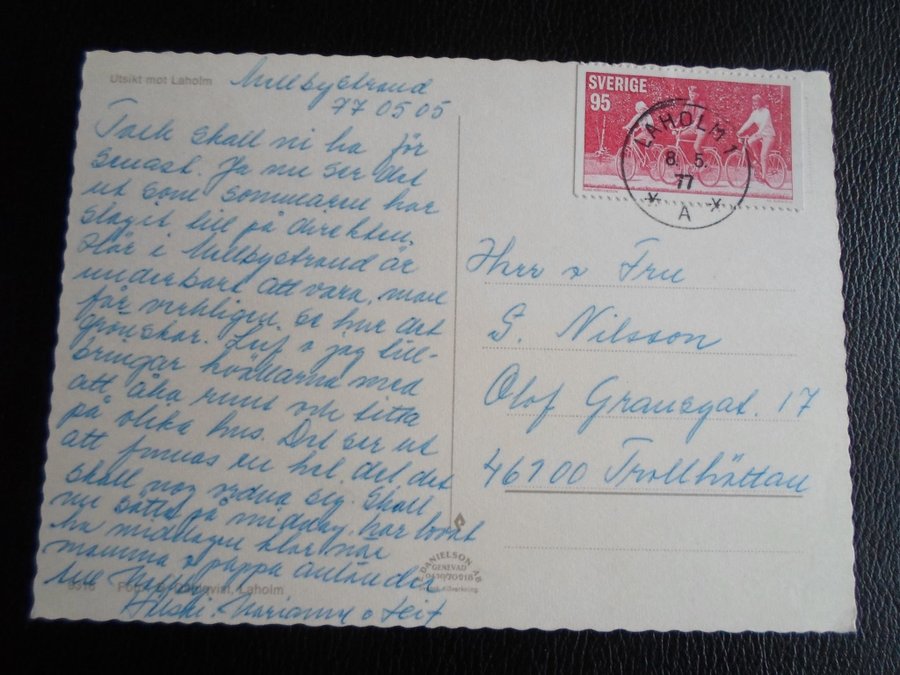 Utsikt mot Laholm
Mellbystrand
77 05 05
Tack skall ni ha för
senast. Ja nu ser det
ut som sommaren har
slagit till på direkten.
Här i Mellbystrand är
underbart att vara, man
får verkligen se hur det
grönskar. Leif o jag till-
bringar kvällarna med
att åka runt och titta
på olika hus. Det ser ut
att finnas en hel del, det
skall nog ordna sig. Skall
nu sätta på middag, har lovat
ha middagen klar när
mamma o pappa anländer
till
Marianne o Leif
Laholm
SVERIGE
95
LAHOLM 1
8. 5.
77
* A *
Herr o Fru
S. Nilsson
Olof Gransgat. 17
46100 Trollhättan
DANIELSON AB
GENEVAD